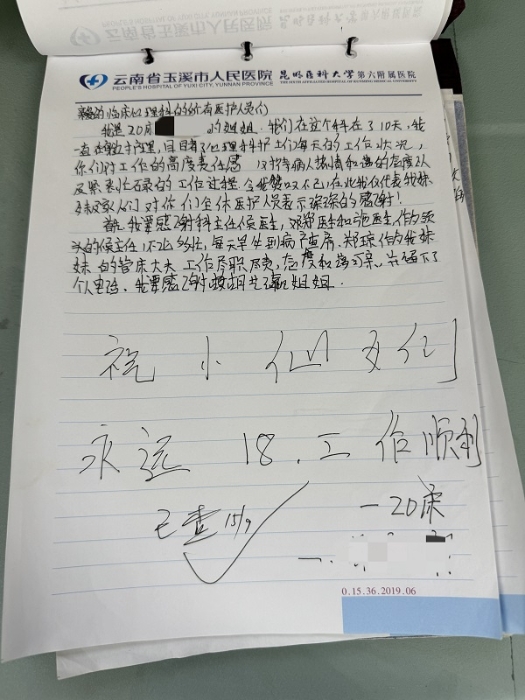 云南省玉溪市人民医院 昆明医科大学第六附属医院
PEOPLE'S HOSPITAL OF YUXI CITY, YUNNAN PROVINCE
临床心理科的所有医护人员们
我是20床 的姐姐,我们在这个科在了10天,我
一直在陪护,目目睹了心理科护士们每天的工作状况,
你们对工作的高度责任感 以对待病人热情和蔼的态度以
及紧张忙碌的工作过程 令我赞叹不已,在此我仅代表我妹
妹及家人们对你们全体医护人员表示深深的感谢!
首先我要感谢科主任侯医生,郑医生和张医生,作为
头的侯主任,不止
每天坐到病
郑琼作为我妹
妹的管床大夫 工作尽职尽责,态度和蔼可亲,
下了
个人电话,我要感谢
姐姐
祝小仙女们
永远18,工作顺利
已查 15/9
—20床
0.15.36.2019.06